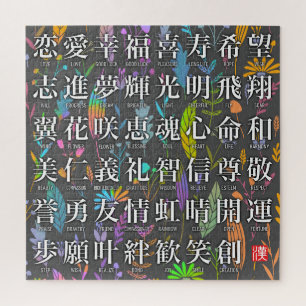 恋愛幸福喜寿希望
LOVE LOVE GOOD LUCK GOOD LUCK PLEASURE LONG LIFE HOPE WISH
志進夢輝光明飛翔
WILL PROGRESS DREAM BRIGHT LIGHT CHEERFUL FLY SOAR
翼花咲恵魂心命和
WING FLOWER BLOOM BLESSING SOUL HEART LIFE HARMONY
美仁義礼智信尊敬
BEAUTY COMPASSION GRATITUDE WISDOM BELIEVE ESTEEM RESPECT
誉勇友情虹晴開運
PRAISE BRAVERY FRIEND COMPASSION RAINBOW CLEAR OPEN FORTUNE
歩願叶絆歓笑創
STEP WISH REALIZE BOND JOY CREATION
漢